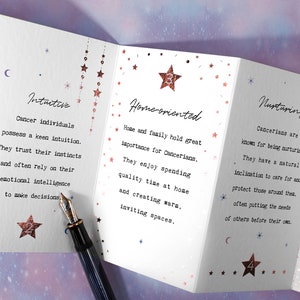 Intuitive
Cancer individuals
possess a keen intuition.
They trust their instincts
and often rely on their
emotional intelligence
to make decisions
Home-oriented
Home and family hold great
importance for Cancerians.
They enjoy spending
quality time at home
and creating warm,
inviting spaces.
Nurturing
Cancerians are
known for being nurturing
They have a natural
inclination to care for and
protect those around them,
often putting the needs
of others before their own.